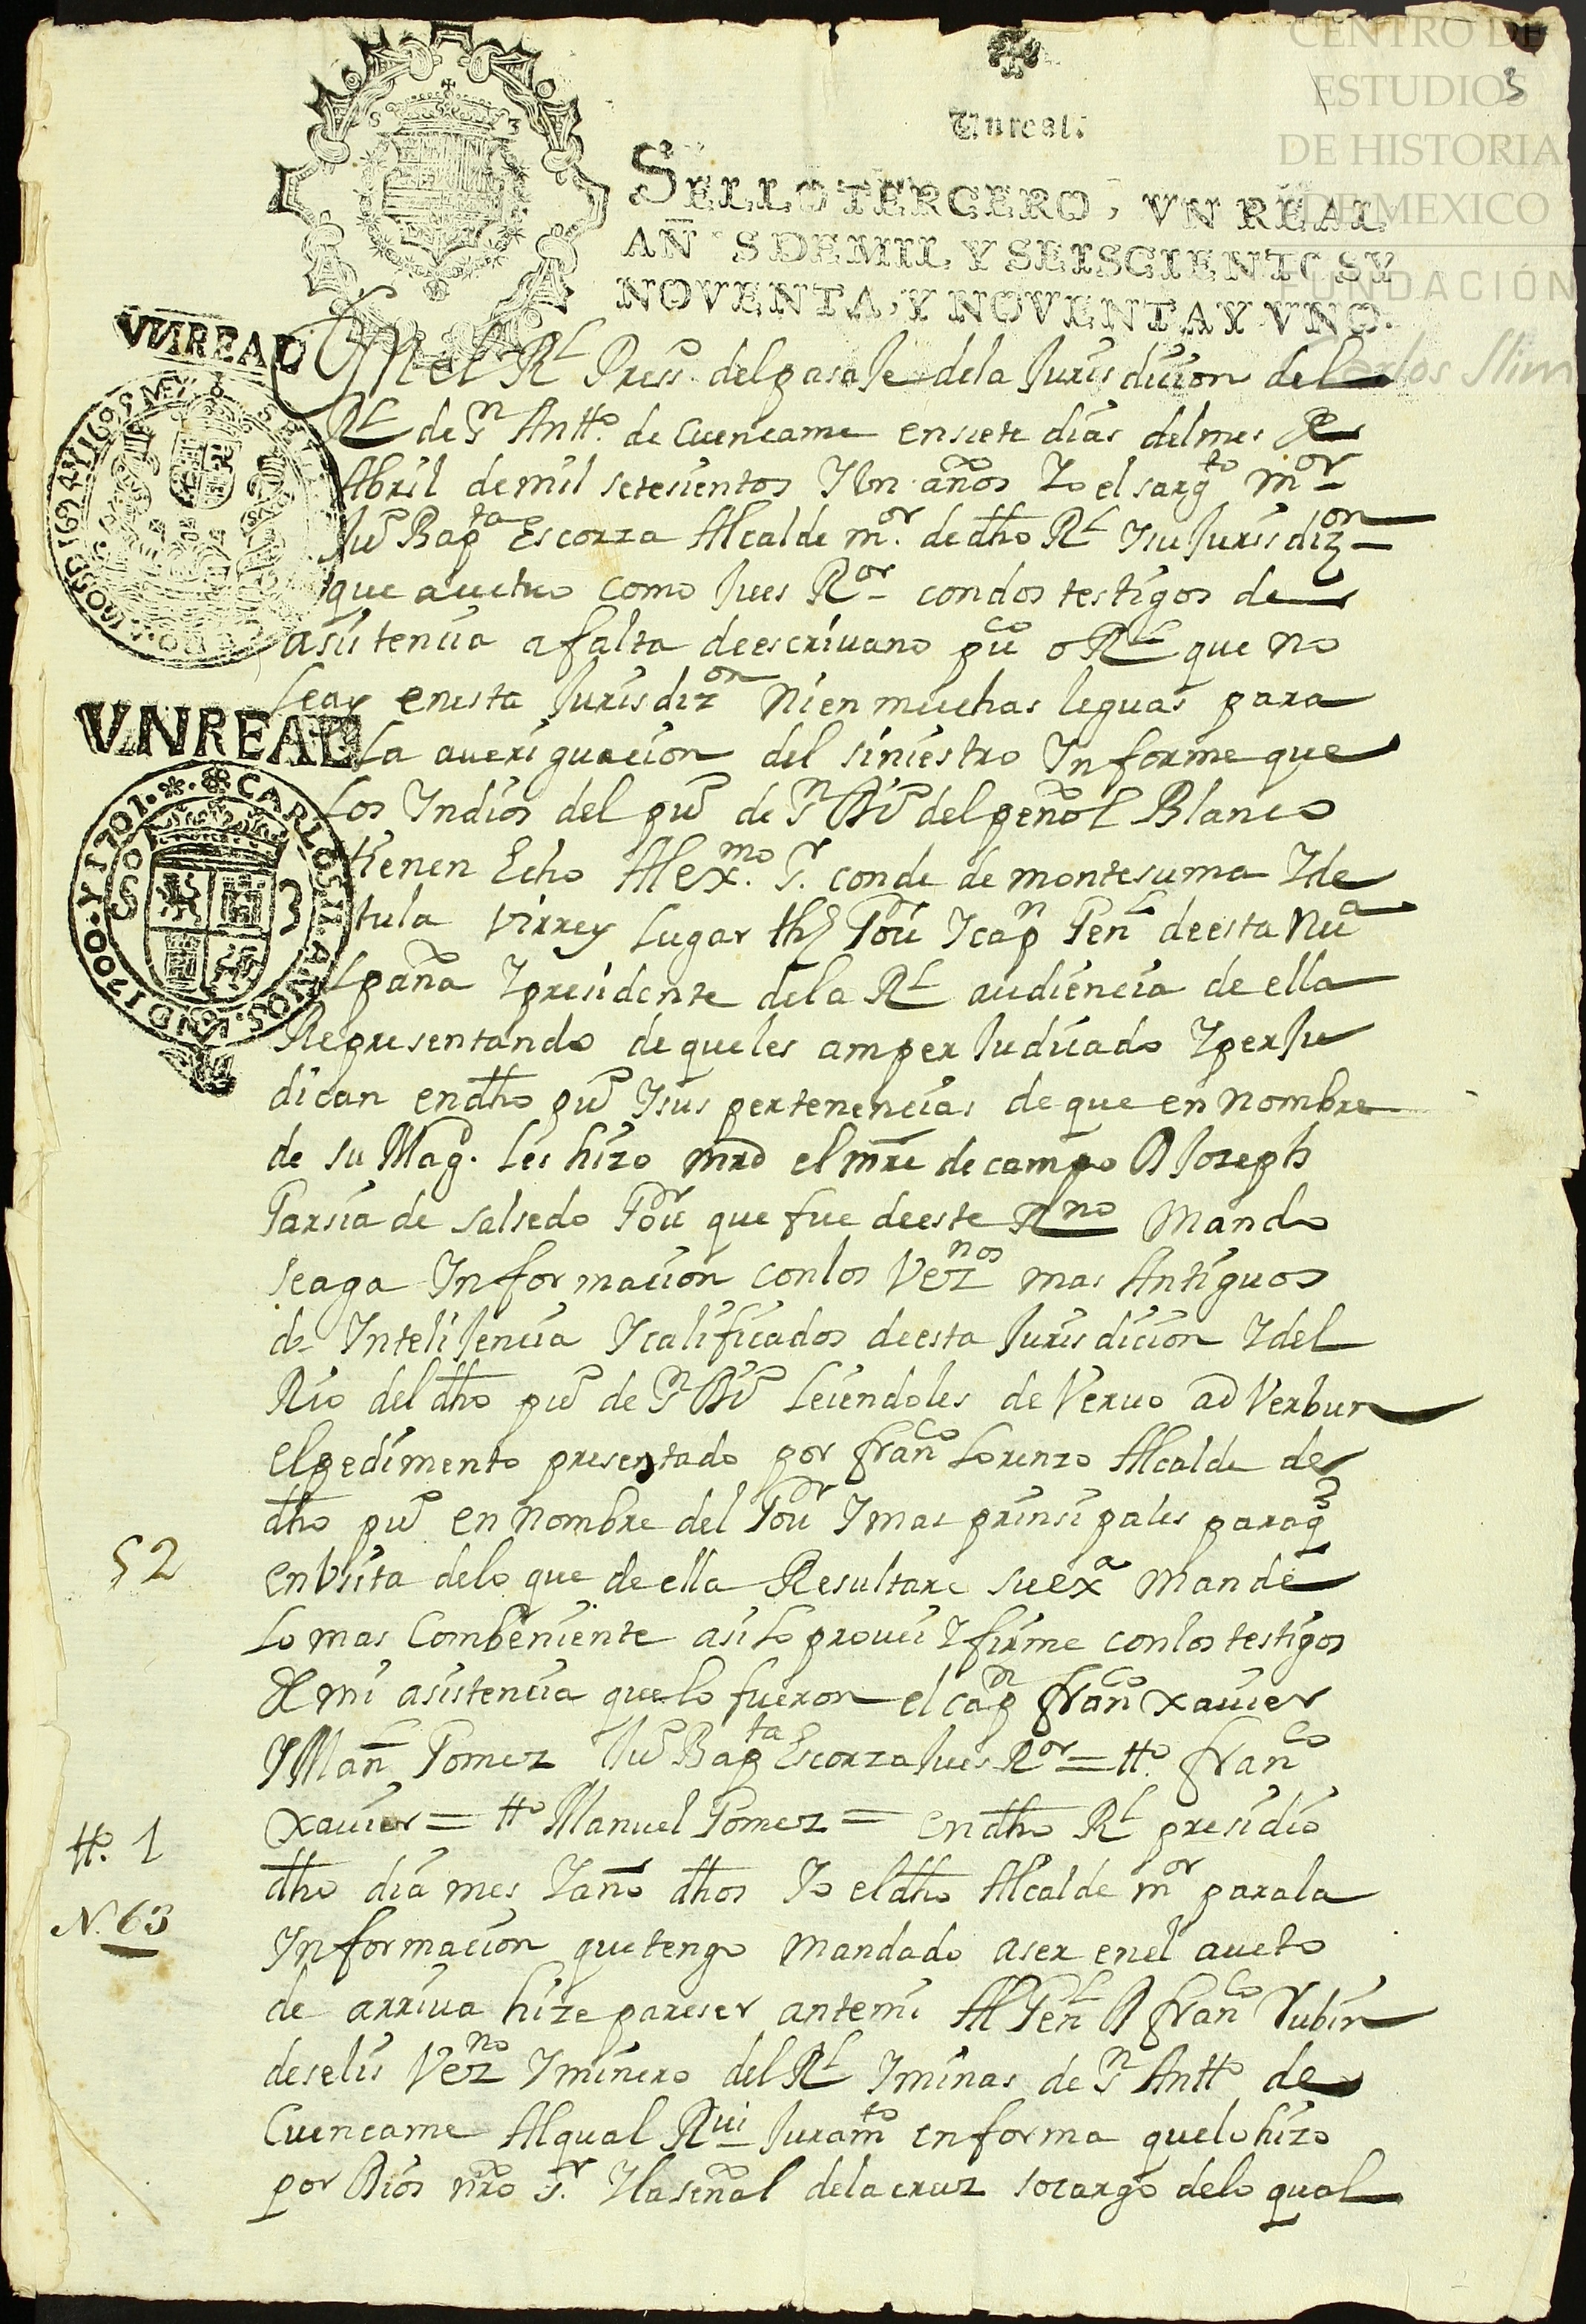 CENTRO DE
ESTUDIOS
DE HISTORIA
DE MEXICO
FUNDACIÓN
Carlos Slim
3
Vn real.
SELLO TERCERO, VN REAL
AÑ S DE MIL Y SEISCIENTOS Y
NOVENTA, Y NOVENTA Y VNO.
VN REAL
VN REAL
CARLOS II ANOS VND 1700 Y 1701
S 3
En el Rl Press del pasaje de la Jurisdicion del
Rl de Sn Antto. de Cuencame en siete dias del mes de
Abril de mil setesientos Y Un años Yo el sargto mor
Ju Bapta Escorza Alcalde mor. de dho Rl Y su Jurisdizon
que auctuo como Jues Ror con dos testigos de
asistencia a falta de escriuano puco o Rl que no
leay en esta Jurisdizon ni en muchas leguas para
la aueriguacion del siniestro Informe que
los Yndios del puo de Sn Buo del peñol Blanco
tienen Echo Al exmo. Sr. conde de montesuma Y de
tula Virrey Lugar thz Gour Y capn Genl de esta Nua
Spaña Y presidente de la Rl audiencia de ella
Representando de que les am perJudicado Y perJu
dican en dho puo Y sus pertenencias de que en nombre
de su Magd. les hizo mrd el mre de campo D Joseph
Garsia de salsedo Gour que fue de este Rno Mando
seaga Informacion con los Veznos mas Antiguos
de InteliJencia Y calificados de esta Jurisdicion Y del
Rio del dho puo de Sn Buo leiendoles de Veruo ad Verbun
el pedimento presentado por franco Lorenzo Alcalde de
dho puo en nombre del Gour Y mas prinsipales para q
en Vsita de lo que de ella Resultare su exa mande
lo mas Combeniente asi lo prouei Y firme con los testigos
de mi asistencia que lo fueron el capn franco xauier
Y Manl Gomez Juo Bapta Escorza Jues Ror = tto. franco
xauier = tto Manuel Gomez = en dho Rl presidio
dho dia mes Y año dhos Yo el dho Alcalde mor para la
Informacion que tengo mandado aser en el aucto
de arriua hize pareser ante mi Al Genl D franco Rubin
de selis Vezno Y minero del Rl Y minas de Sn Antto de
Cuencame Al qual Rui Juramto en forma que lo hizo
por Dios nro Sr. Y la señal de la cruz so cargo de lo qual
52
tto. 1
N. 63